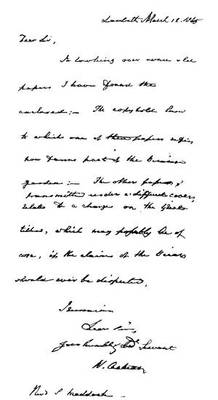 Lambeth March 18. 1845
Dear Sir,
In looking over some old
papers I have found the
enclosed:— The copyhold
to which one of these papers refers,
now forms part of the
garden:— The other papers,
transmitted under a difficult cover,
relate to a charge on the
tithes, which may possibly be of
use, if the claims of the Vicars
should ever be disputed.
I remain
Dear Sir,
Your humble Servant
Revd S Maddock